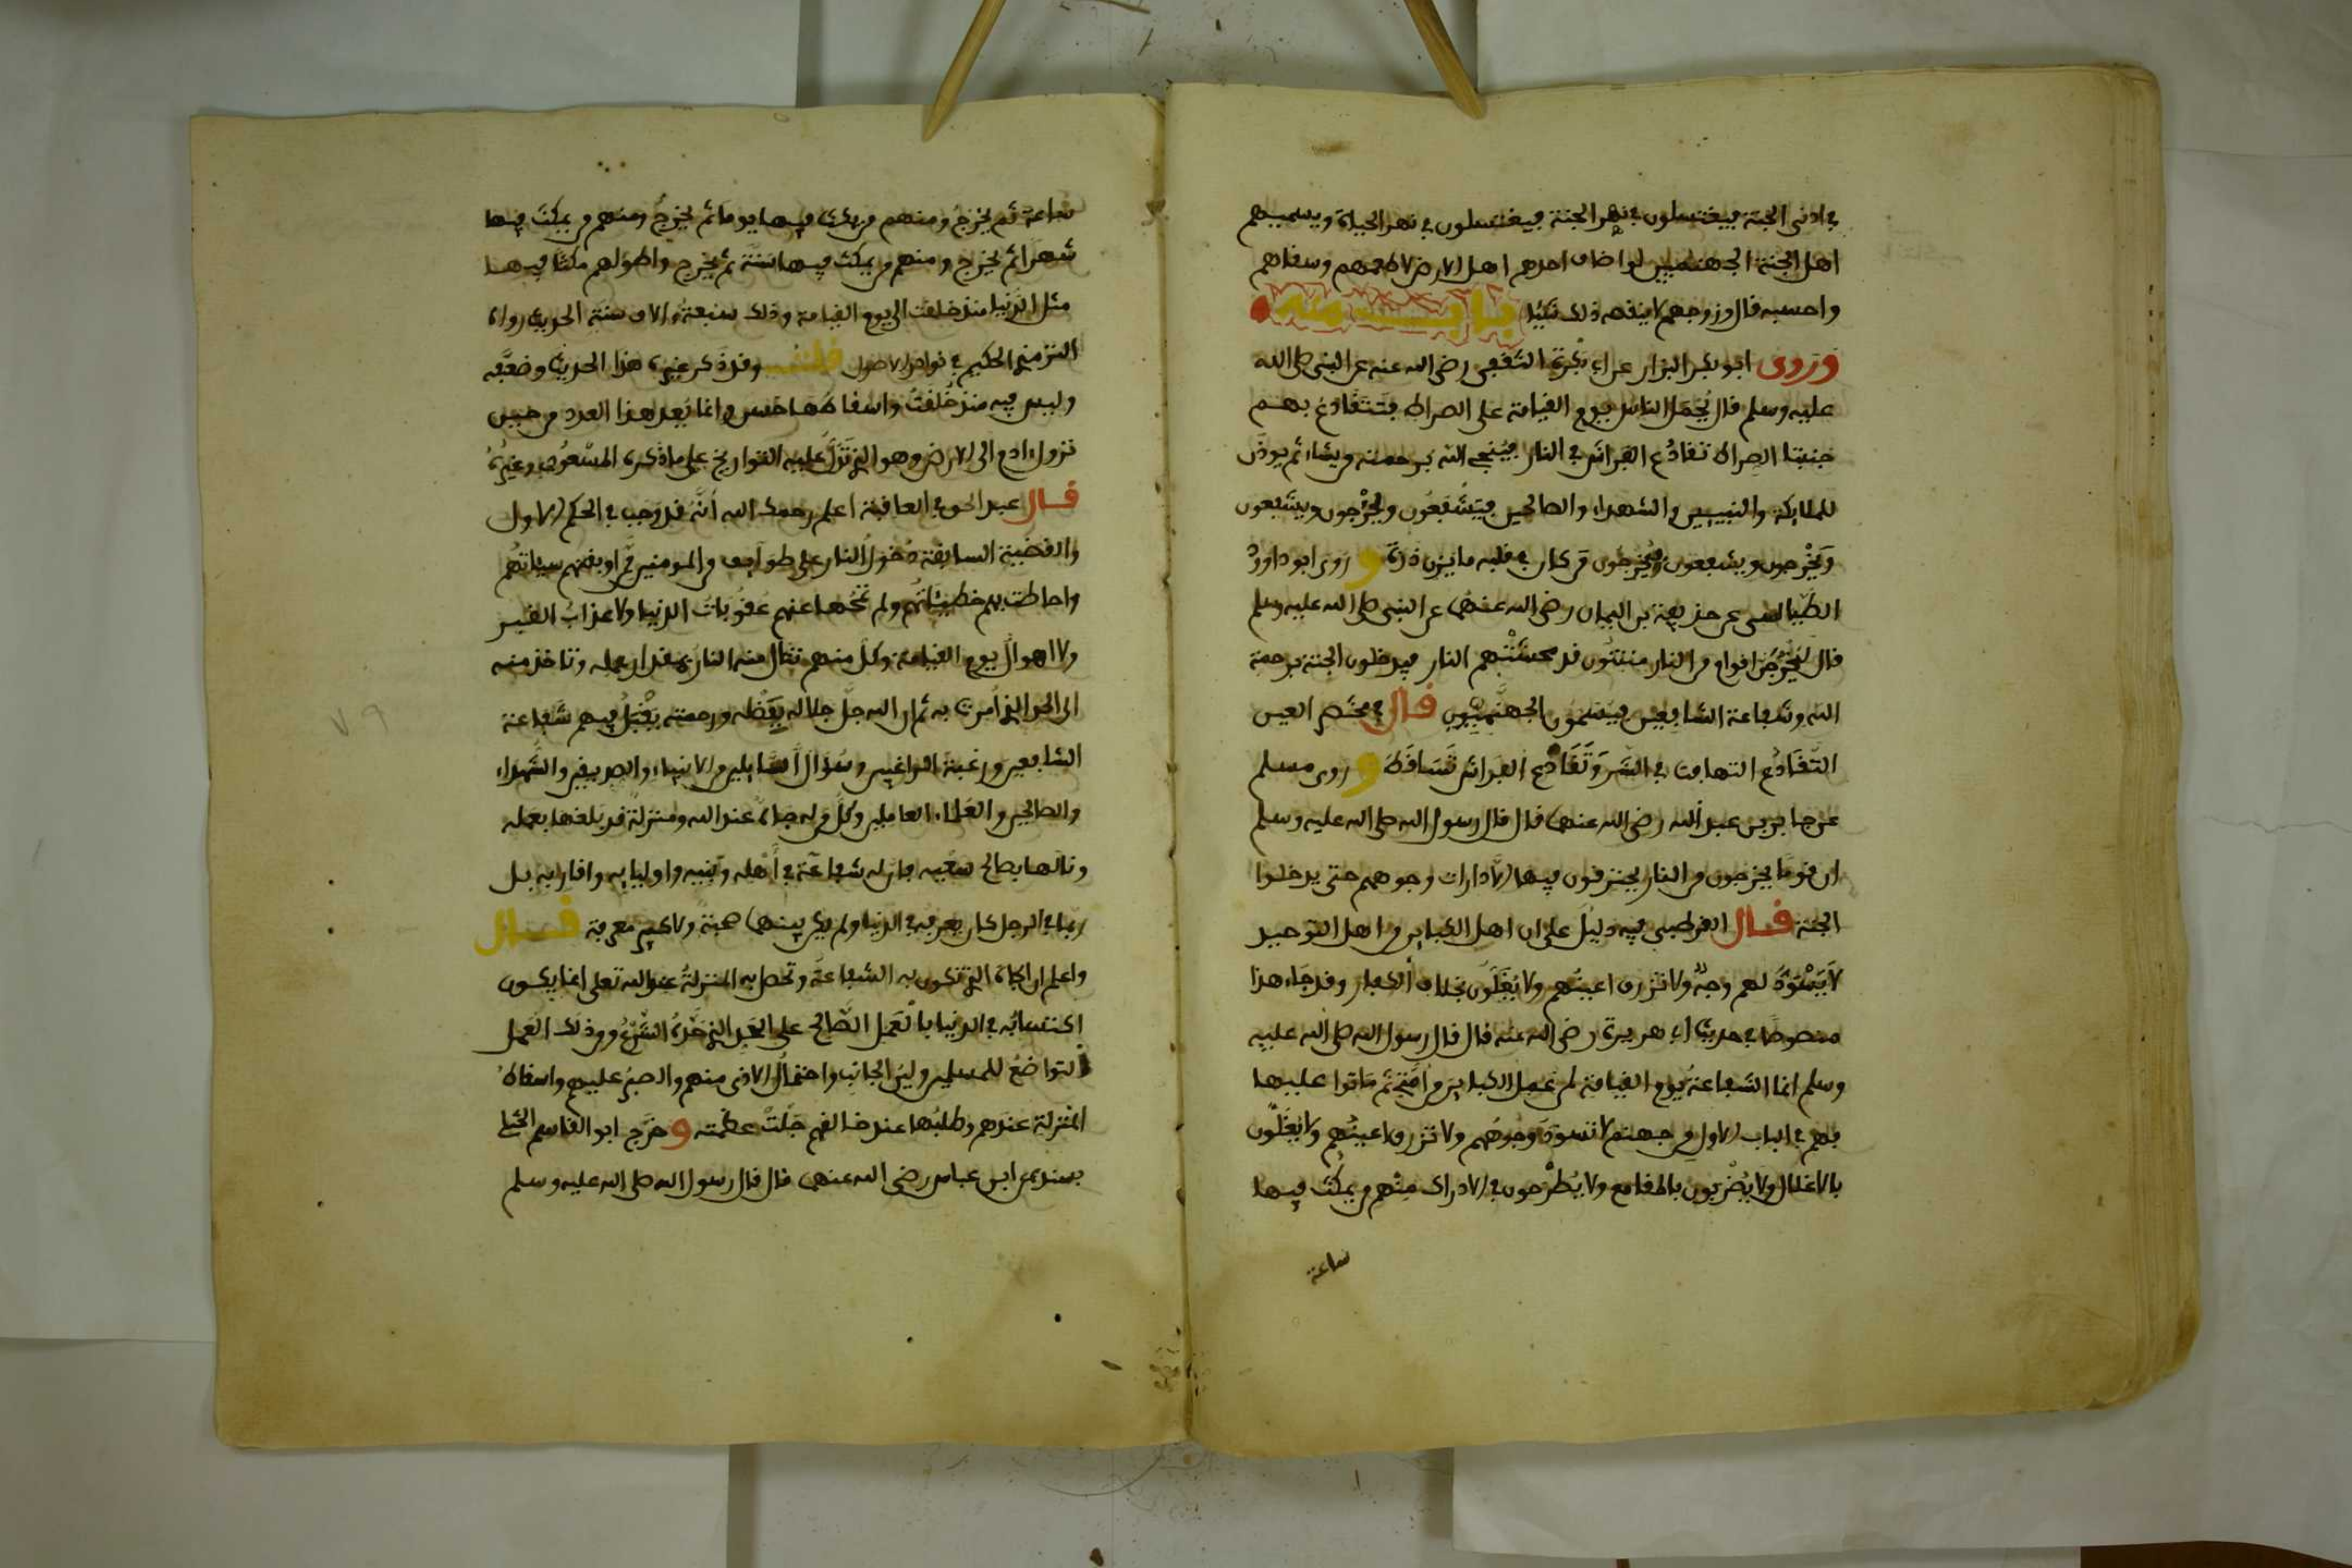 في ادنى الجنة فيغتسلون في نهر الجنة فيغتسلون في نهر الحياة ويسميهم
اهل الجنة الجهنميين لو اضاف احدهم اهل الارض لاطعمهم وسقاهم
واحسبه قال وزوجهم لا ينقصه ذلك شيئا باب منه
وروى ابو بكر البزار عن ابي بكرة الثقفي رضي الله عنه عن النبي صلى الله
عليه وسلم قال يُحمَل الناس يوم القيامة على الصراط فتتقادع بهم
جنبتا الصراط تقادُع الفراش في النار فيُنجي الله برحمته من يشاء ثم يوذن
للملايكة والنبيين والشهداء والصالحين فيَشْفَعُون ويُخْرِجون ويشفعون
ويُخْرِجون ويشفعون ويُخْرِجُون من كان في قلبه ما يزن ذرة و روى ابو داوود
الطيالسي عن حذيفة بن اليمان رضي الله عنهما عن النبي صلى الله عليه وسلم
قال ليَخْرُجَنَّ اقوام من النار منتنون قد محشتْهم النار فيدخلون الجنة برحمة
الله وشفاعة الشافعين فيسمون الجهنميون قال في مختصر العين
التَّقَادُع التهافت في الشر وتَقَادُع الفراش تساقطه و روى مسلم
عن جابر بن عبد الله رضي الله عنهما قال قال رسول الله صلى الله عليه وسلم
ان قوما يخرجون من النار يحترقون فيها الا دارات وجوههم حتى يدخلوا
الجنة قال القرطبي فيه دليل على ان اهل الكباير من اهل التوحيد
لا يَسْوَدُّ لهم وجهٌ ولا تزرق اعينُهم ولا يُغَلُّون بخلاف الكفار وقد جاء هذا
منصوصا في حديث ابي هريرة رضي الله عنه قال قال رسول الله صلى الله عليه
وسلم انما الشفاعة يوم القيامة لمن عمل الكباير من امتي ثم ماتوا عليها
فهم في الباب الاول من جهنم لا تسودّ وجوهُهم ولا تزرق اعينُهم ولا يُغَلُّون
بالاغلال ولا يُضْربون بالمقامع ولا يُطْرَحون في الادراك منهم من يمكث فيها
ساعة
ساعة ثم يخرجُ ومنهم من يمكث فيها يوما ثم يخرجُ ومنهم من يمكث فيها
شهرا ثم يخرج ومنهم من يمكث فيها سنة ثم يخرج واطولهم مكثا فيها
مثل الدنيا منذ خلقت الى يوم القيامة وذلك سبعة الاف سنة الحديث رواه
الترمذي الحكيم في نوادر الاصول قلت وقد ذكر غيره هذا الحديث وضعّفه
وليس فيه منذ خُلقت واسقاطها حسن وانما يُعد هذا العدد من حين
نزول ادم الى الارض وهو الذي تَنْزل عليه التواريخ على ما ذكره المسعودي وغيرُه
قال عبد الحق في العاقبة اعلم رحمك الله أنَّه قد وَجب في الحكم الاول
والقضية السابقة دُخولُ النار على طوايف من المومنين ممن اوبقتهم سيياتُهم
واحاطت بهم خطيئاتُهم ولم تمحُها عنهم عقوبات الدنيا ولا عذابُ القبر
ولا اهوال يوم القيامة وكلٌّ منهم تنال منه النار بمقدار عمله وتاخذ منه
الى الحد الذي اُمرت به ثم ان الله جلَّ جلاله بفَضْله ورحمته يقْبَلُ فيهم شفاعة
الشافعين ورغبة الراغبين وسُؤال السايلين من الانبياء والصديقين والشهداء
والصالحين والعلماء العاملين وكلِّ من له جاهٌ عند الله ومنزلةٌ قد بَلغها بعمله
ونالها بصالح سعيه فان له شفاعةً في أهله وبنيه واوليايه واقاربه بل
ربما في الرجل كان يعرفه في الدنيا ولم يكن بينهما صحبةٌ ولا كبير معرفة قال
واعلم ان الجاه الذي تكون به الشفاعة وتحصل به المنزلةُ عند الله تعلى انما يكون
اكتسابُه في الدنيا بالعمل الصالح على الحد الذي حَدَّه الشرع ومن ذلك العمل
التواضعُ للمسلمين ولينُ الجانب واحتمالُ الاذى منهم والصبرُ عليهم واسقاطُ
المنزلة عندهم وطلبُها عند خالقهم جَلَّتْ عظمته و خرّج ابو القاسم الختلي
بسنده عن ابن عباس رضي الله عنهما قال قال رسول الله صلى الله عليه وسلم
٧٩